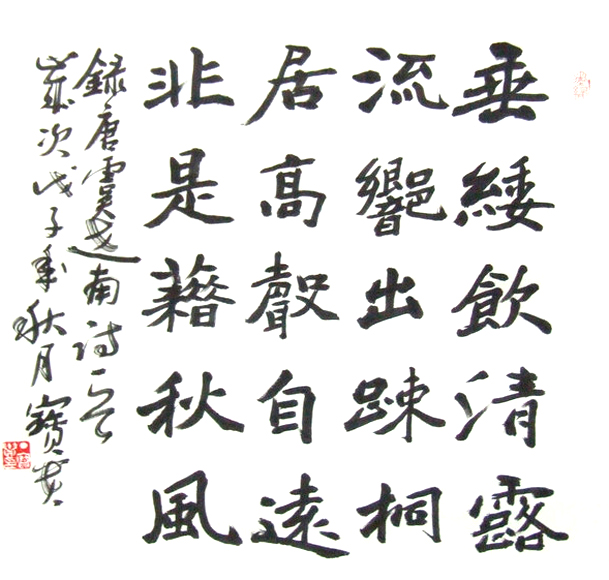 垂緌飲清露
流響出疎桐
居高聲自遠
非是藉秋風
錄唐虞世南詩一首
歲次戊子年秋月寶